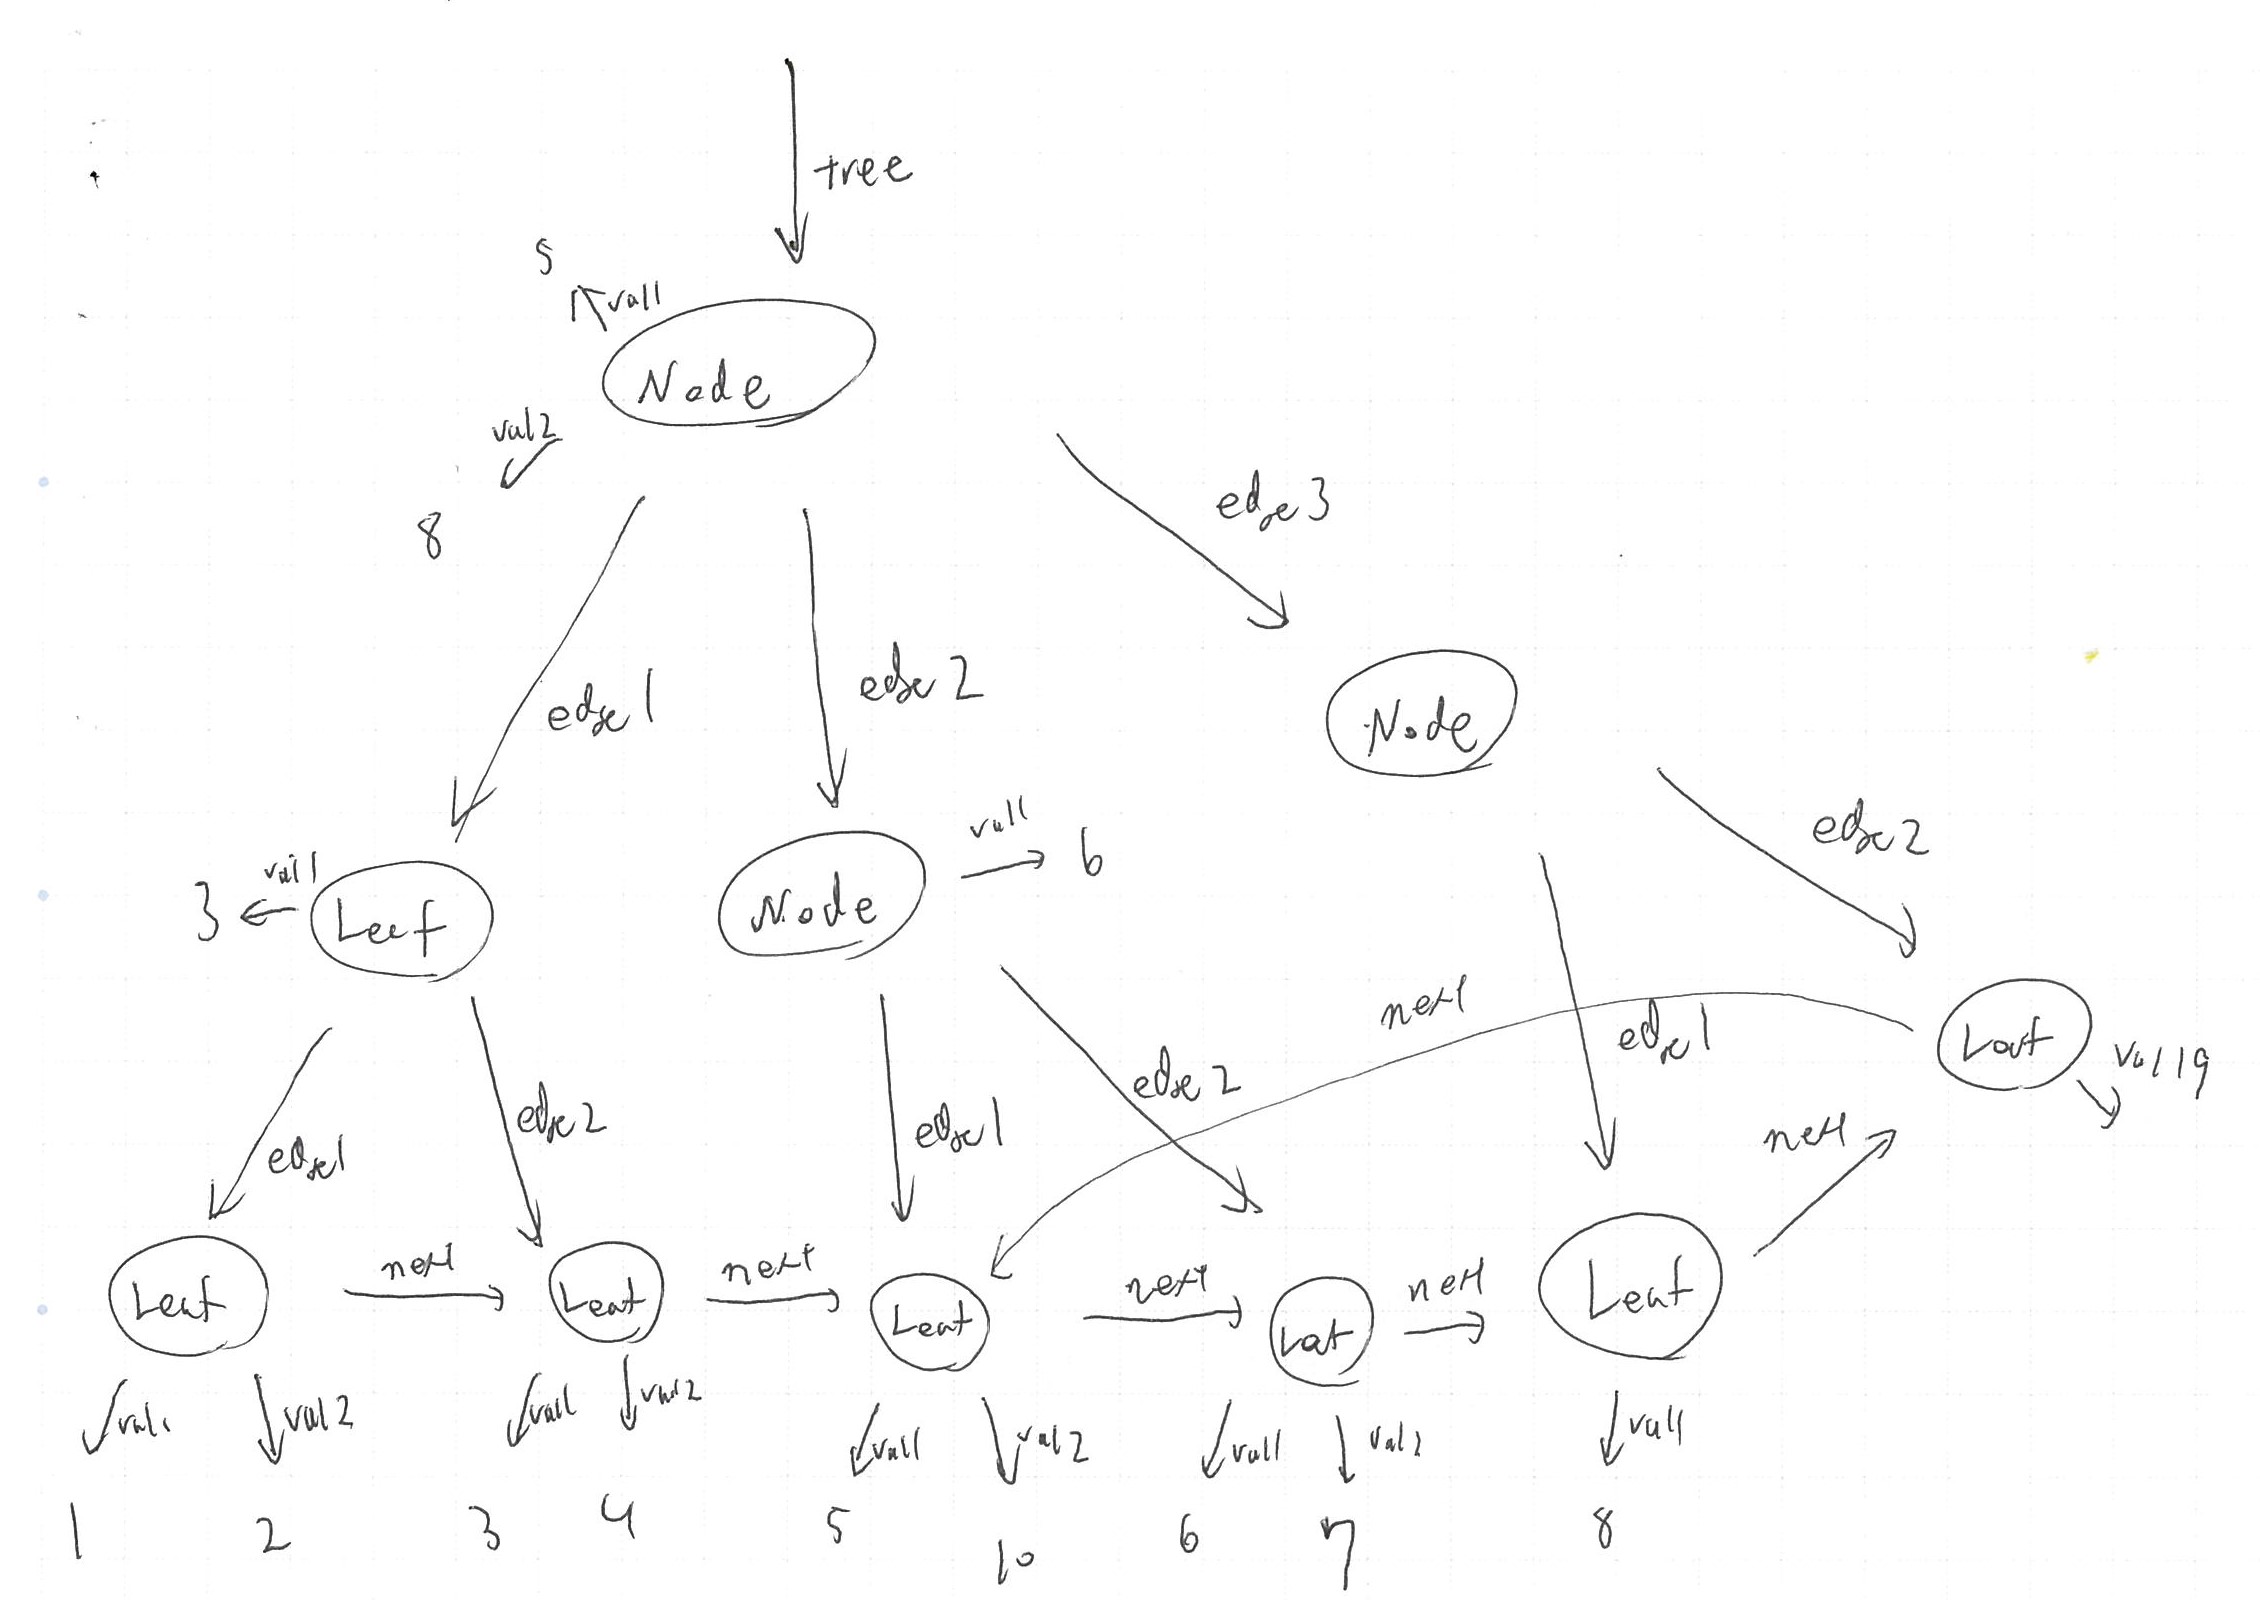 tree
5
val1
Node
val2
8
edge3
edge1
edge2
Node
3
val1
Leaf
Node
val1
6
edge2
next
edge1
Leaf
val1 9
edge1
edge2
edge1
edge2
next
Leaf
next
Leaf
next
Leaf
next
Leaf
next
Leaf
val1
val2
val1
val2
val1
val2
val1
val2
val1
1
2
3
4
5
10
6
7
8